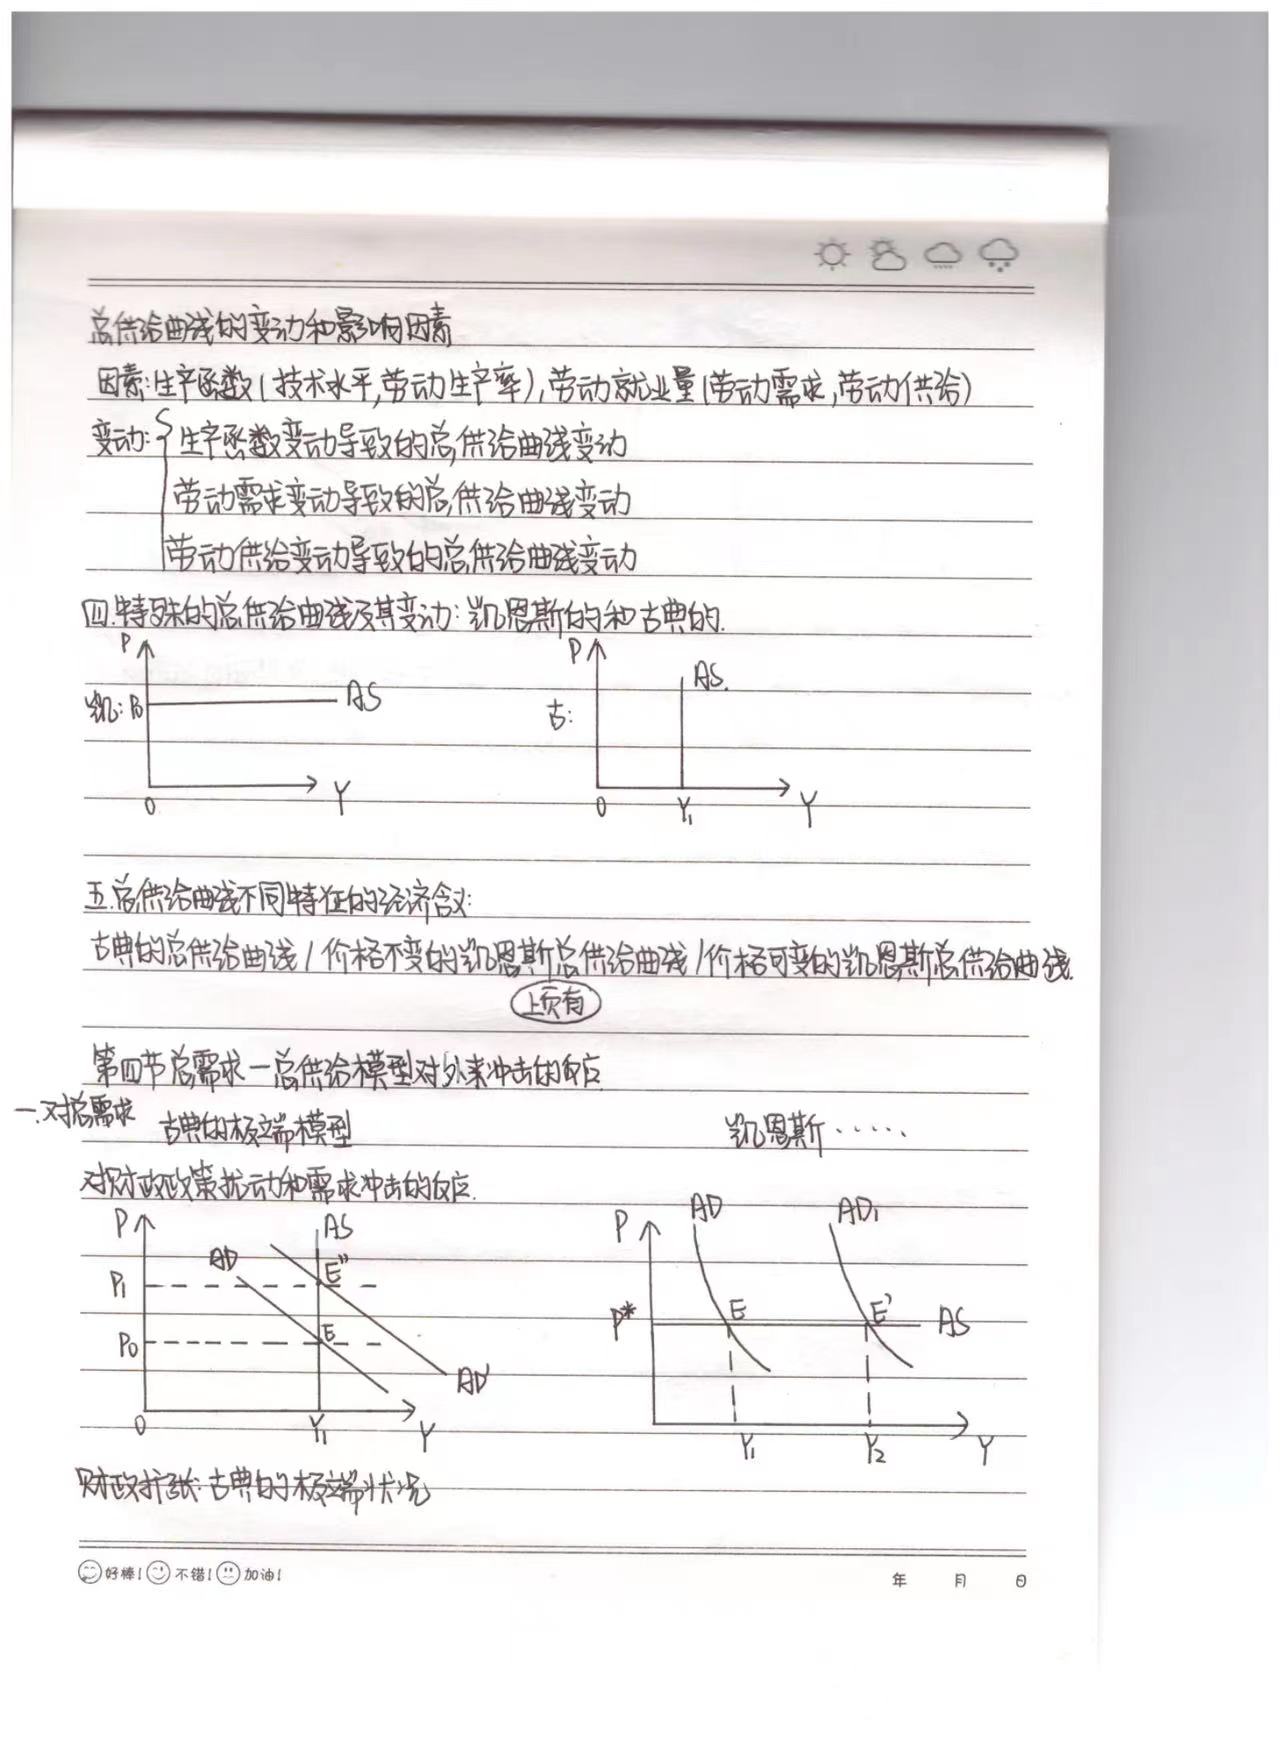 总供给曲线的变动和影响因素
因素:生产函数(技术水平,劳动生产率),劳动就业量(劳动需求,劳动供给)
变动:{生产函数变动导致的总供给曲线变动
劳动需求变动导致的总供给曲线变动
劳动供给变动导致的总供给曲线变动
四.特殊的总供给曲线及其变动:凯恩斯的和古典的.
P P
AS AS.
凯: P₀ 古:
0 Y 0 Y₁ Y
五.总供给曲线不同特征的经济含义:
古典的总供给曲线/价格不变的凯恩斯总供给曲线/价格可变的凯恩斯总供给曲线.
上页有
第四节总需求-总供给模型对外来冲击的反应
一.对总需求 古典的极端模型 凯恩斯······
对财政政策扰动和需求冲击的反应.
P AS P AD AD₁
AD E"
P₁
P₀ E P* E E' AS
AD'
0 Y₁ Y Y₁ Y₂ Y
财政扩张:古典的极端状况
好棒! 不错! 加油! 年 月 日